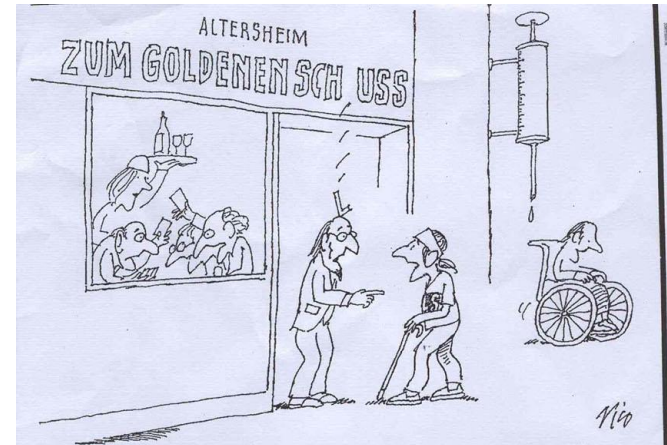 ALTERSHEIM
ZUM GOLDENEN SCH USS
Nico